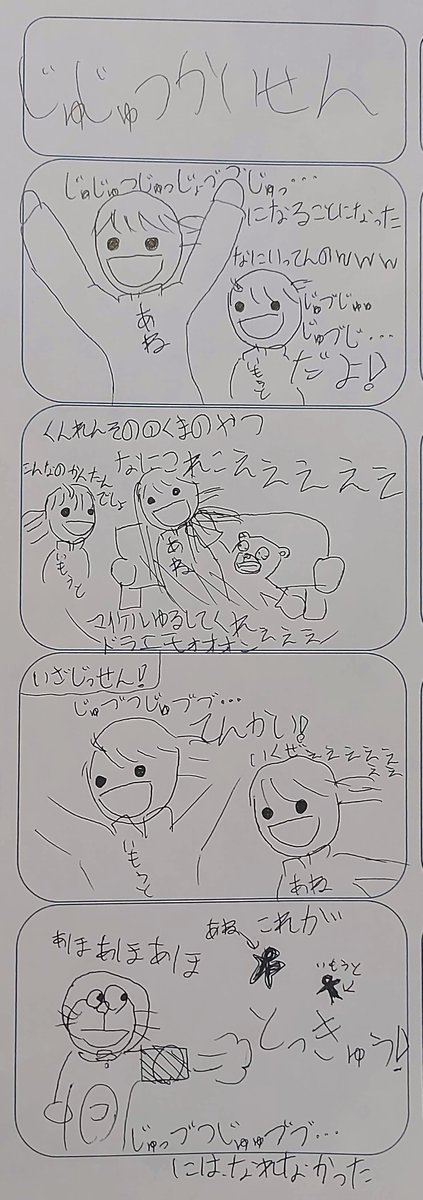 じゅじゅつかいせん
じゅじゅつじゅっじょづづじゅっ…
になることになった
なにいってんのwww
あね
じゅづじゅゅ
じゅづじ…
だよ!
いもうと
くんれんその①くまのやつ
なにこれこえぇぇぇぇ
こんなのかんたん
でしょ
いもうと
あね
マイケルゆるしてくれ
ドラエモォオオンェェェ
いざじっせん!
じゅづつじゅづブ…
てんかい!
いくぜぇぇぇぇぇ
ぇぇ
いもうと
あね
あほあほあほ
あね
これが
いもうと
とっきゅう!
じゅっづつじゅゅづブ…
にはなれなかった